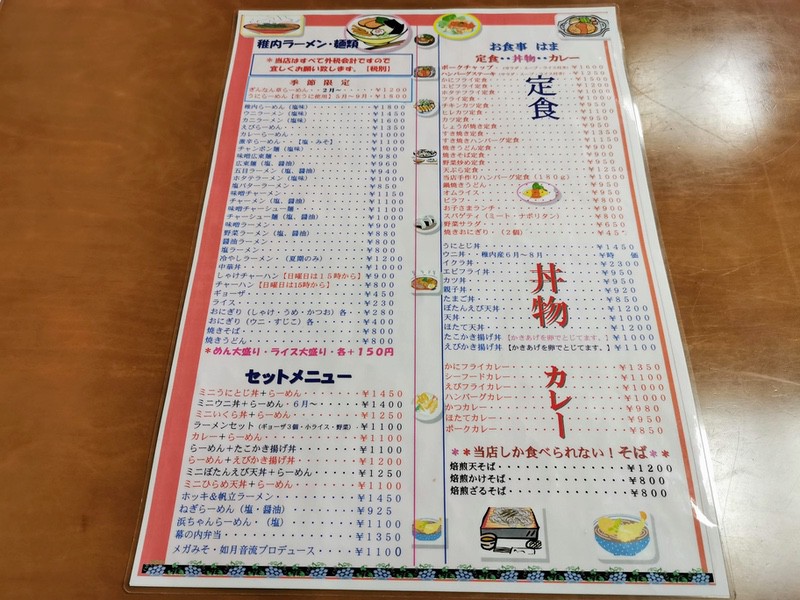 稚内ラーメン・麺類
＊当店はすべて外税会計ですので
宜しくお願い致します。【税別】
季節限定
ぎんなん草らーめん・・2月～・・・・・¥1200
うにらーめん【生うに使用】5月～9月・¥1800
稚内らーめん（塩味）・・・・・・¥1800
ウニラーメン（塩味）・・・・・・¥1450
カニラーメン（塩味）・・・・・・¥1600
えびらーめん・・・・・・¥1350
カレーらーめん・・・・・・¥1000
激辛らーめん・・【塩・みそ】・・・¥1100
チャンポン麺（塩味）・・・・・・¥1000
味噌広東麺・・・・・・¥980
広東麺（塩、醤油）・・・・・・¥960
五目ラーメン（塩味）・・・・・・¥940
ホタテラーメン（塩味）・・・・・・¥1000
塩バターラーメン・・・・・・¥850
味噌チャーメン・・・・・・¥1150
チャーメン（塩、醤油）・・・・・・¥1100
味噌チャーシュー麺・・・・・・¥1100
チャーシュー麺（塩、醤油）・・・・・・¥1000
味噌ラーメン・・・・・・¥900
野菜ラーメン（塩、醤油）・・・・・・¥880
醤油ラーメン・・・・・・¥800
塩ラーメン・・・・・・¥800
冷やしラーメン・・（夏期のみ）・・・¥1200
中華丼・・・・・・¥1000
しゃけチャーハン【日曜日は15時から】¥900
チャーハン【日曜日は15時から】・・・¥800
ギョーザ・・・・・・¥450
ライス・・・・・・¥230
おにぎり（しゃけ・うめ・かつお）各・・¥280
おにぎり（ウニ・すじこ）各・・・・¥400
焼きそば・・・・・・¥800
焼きうどん・・・・・・¥800
＊めん大盛り・ライス大盛り・各＋150円
セットメニュー
ミニうにとじ丼＋らーめん・・・・・・¥1450
ミニウニ丼＋らーめん・6月～・・・・¥1400
ミニいくら丼＋らーめん・・・・・・¥1250
ラーメンセット（ギョーザ3個・小ライス・野菜）・¥1100
カレー＋らーめん・・・・・・¥1100
らーめん＋たこかき揚げ丼・・・・・・¥1100
らーめん＋えびかき揚げ丼・・・・・・¥1200
ミニぼたんえび天丼＋らーめん・・・・¥1250
ミニひらめ天丼＋らーめん・・・・・・¥1100
ホッキ&帆立ラーメン・・・・・・¥1450
ねぎらーめん（塩・醤油）・・・・・・¥925
浜ちゃんらーめん・（塩）・・・・・・¥1100
幕の内弁当・・・・・・¥1350
メガみそ・如月音流プロデュース・・・・¥1100
お食事 はま
定食・・丼物・・カレー
定食
ポークチャップ
ハンバーグステーキ
かにフライ定食
エビフライ定食
ホタテフライ定食
フライ定食
チキンカツ定食
ヒレカツ定食
カツ定食
しょうが焼き定食
すき焼き定食・・・・・・¥1350
すき焼きハンバーグ定食・・・・・・¥1150
焼きうどん定食・・・・・・¥900
焼きそば定食・・・・・・¥900
野菜炒め定食・・・・・・¥950
天ぷら定食・・・・・・¥1250
当店手作りハンバーグ定食（180g）・・¥1000
鍋焼きうどん・・・・・・¥950
オムライス・・・・・・¥850
ピラフ・・・・・・¥800
お子さまランチ・・・・・・¥900
スパゲティ（ミート・ナポリタン）・・・¥800
野菜サラダ・・・・・・¥650
焼きおにぎり・（2個）・・・・・・¥45
丼物
うにとじ丼・・・・・・¥1450
ウニ丼・・稚内産6月～8月・・・・・・時 価
イクラ丼・・・・・・¥2300
エビフライ丼・・・・・・¥950
カツ丼・・・・・・¥950
親子丼・・・・・・¥920
たまご丼・・・・・・¥850
ぼたんえび天丼・・・・・・¥1200
天丼・・・・・・¥1000
ほたて天丼・・・・・・¥1200
たこかき揚げ丼【かきあげを卵でとじてます。】・¥1000
えびかき揚げ丼【かきあげを卵でとじてます。】・¥1100
カレー
かにフライカレー・・・・・・¥1350
シーフードカレー・・・・・・¥1100
えびフライカレー・・・・・・¥1100
ハンバーグカレー・・・・・・¥1000
かつカレー・・・・・・¥980
ほたてカレー・・・・・・¥950
ポークカレー・・・・・・¥850
＊＊当店しか食べられない！そば＊＊
焙煎天そば・・・・・・¥1200
焙煎かけそば・・・・・・¥800
焙煎ざるそば・・・・・・¥800